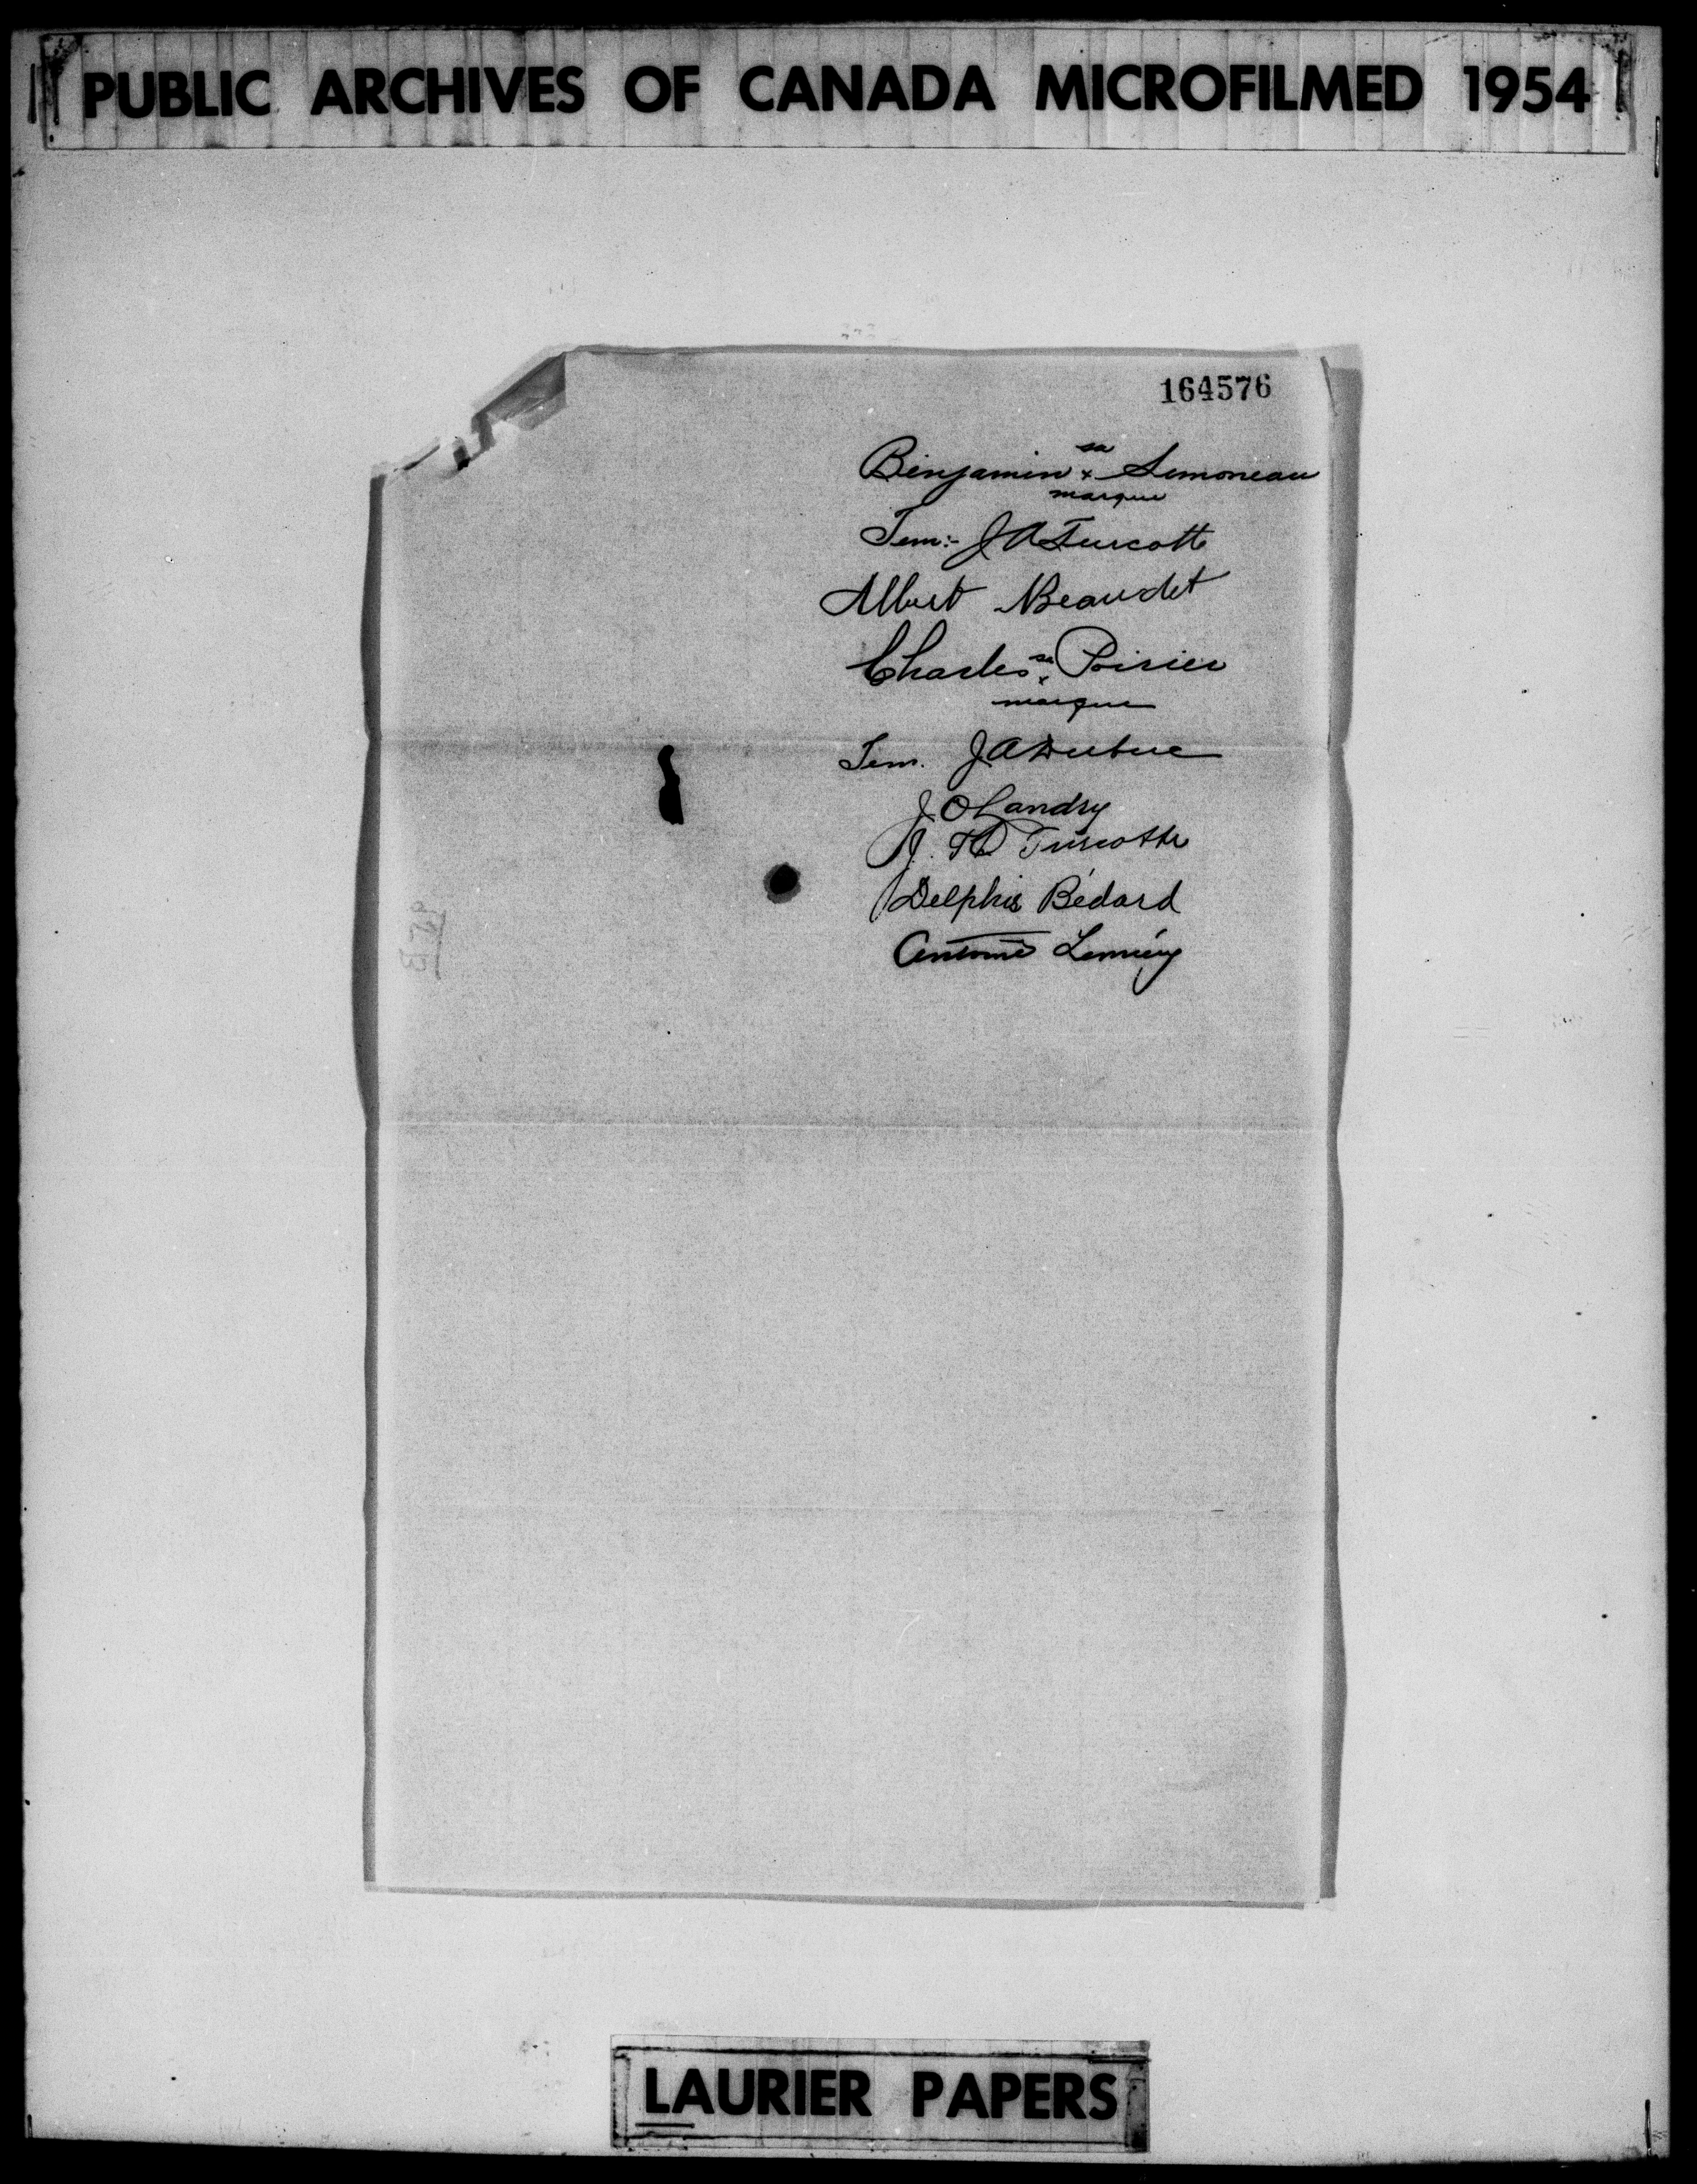 PUBLIC ARCHIVES OF CANADA MICROFILMED 1954
164576
sa
Benjamin x Simoneau
marque
Tem:- J A Turcotte
Albert Beaudet
Charles sa x Poirier
marque
Tem. J A Dubuc
J. O Landry
J. Turcotte
Delphis Bédard
Antoine Lemieux
LAURIER PAPERS